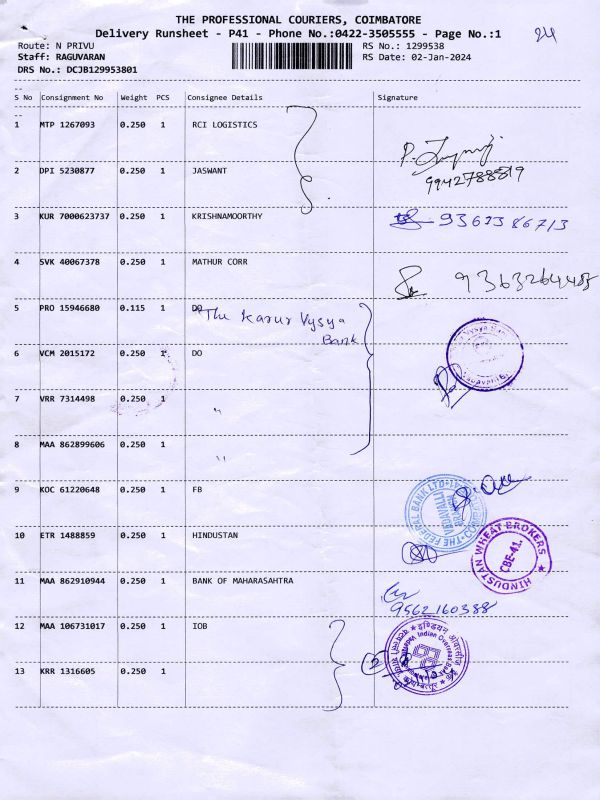 THE PROFESSIONAL COURIERS, COIMBATORE
Delivery Runsheet - P41 - Phone No.:0422-3505555 - Page No.:1
24
Route: N PRIVU
RS No.: 1299538
Staff: RAGUVARAN
RS Date: 02-Jan-2024
DRS No.: DCJB129953801
S No Consignment No Weight PCS Consignee Details Signature
1 MTP 1267093 0.250 1 RCI LOGISTICS
2 DPI 5230877 0.250 1 JASWANT
9942788819
3 KUR 7000623737 0.250 1 KRISHNAMOORTHY
4 SVK 40067378 0.250 1 MATHUR CORR
5 PRO 15946680 0.115 1 DO The Karur Vysya
Bank
6 VCM 2015172 0.250 1 DO
7 VRR 7314498 0.250 1 "
8 MAA 862899606 0.250 1 "
9 KOC 61220648 0.250 1 FB
THE FEDERAL BANK LTD
10 ETR 1488859 0.250 1 HINDUSTAN
HINDUSTAN WHEAT BROKERS
CBE-41.
11 MAA 862910944 0.250 1 BANK OF MAHARASAHTRA
9562160388
12 MAA 106731017 0.250 1 IOB
Indian Overseas Bank
13 KRR 1316605 0.250 1